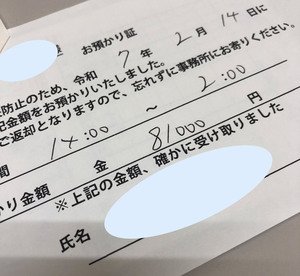 お預かり証
防止のため、令和 7 年 2 月 14 日に
記金額をお預かりいたしました。
ご返却となりますので、忘れずに事務所にお寄りください。
間 14:00 ～ 2:00
かり金額 金 81000 円
※上記の金額、確かに受け取りました
氏名